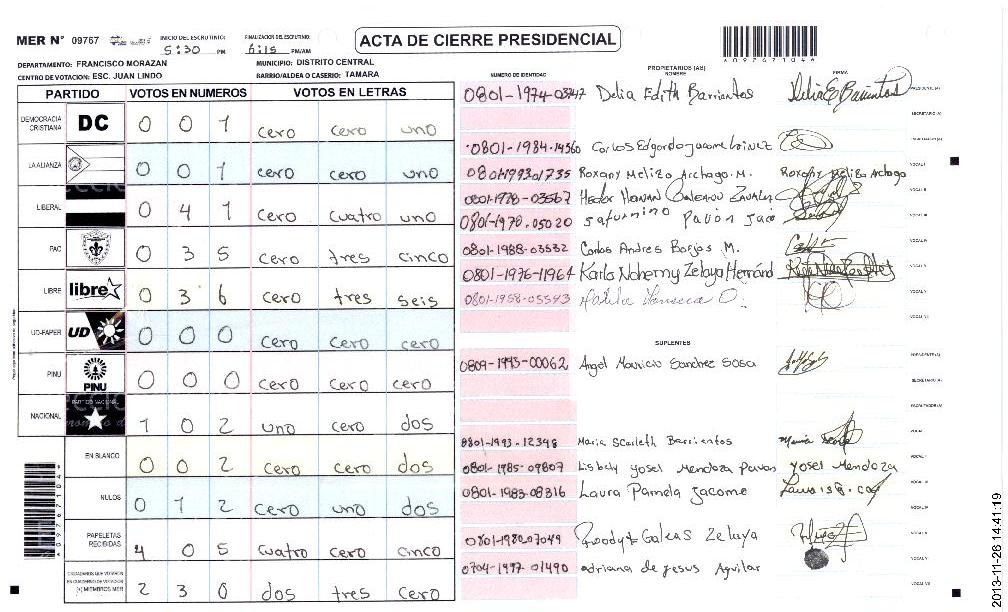 MER N° 09767 INICIO DEL ESCRUTINIO: 5:30 PM FINALIZACION DEL ESCRUTINIO: 6:15 PM/AM
ACTA DE CIERRE PRESIDENCIAL
DEPARTAMENTO: FRANCISCO MORAZAN MUNICIPIO: DISTRITO CENTRAL
CENTRO DE VOTACION: ESC. JUAN LINDO BARRIO/ALDEA O CASERIO: TAMARA
PARTIDO VOTOS EN NUMEROS VOTOS EN LETRAS
DEMOCRACIA CRISTIANA DC 0 0 1 cero cero uno
LA ALIANZA 0 0 1 cero cero uno
LIBERAL 0 4 1 cero cuatro uno
PAC 0 3 5 cero tres cinco
LIBRE libre 0 3 6 cero tres seis
UD-FAPER UD 0 0 0 cero cero cero
PINU PINU 0 0 0 cero cero cero
NACIONAL 1 0 2 uno cero dos
EN BLANCO 0 0 2 cero cero dos
NULOS 0 1 2 cero uno dos
PAPELETAS RECIBIDAS 4 0 5 cuatro cero cinco
CIUDADANOS QUE VOTARON EN CUADERNO DE VOTACION (+) MIEMBROS MER 2 3 0 dos tres cero
PROPIETARIOS (AS)
NUMERO DE IDENTIDAD NOMBRE FIRMA
0801-1974-03747 Delia Edith Barrientos Delia E Barrientos PRESIDENTE(A)
SECRETARIO (A)
0801-1984-14560 Carlos Edgardo Jacome
0801199301735 Roxany Meliza Archaga M. Roxany Meliza Archaga VOCAL I
0801-1978-03567 Hector Hernan VOCAL II
0801-1970-05020 Saturnino Pavon VOCAL III
0801-1988-03532 Carlos Andres Borjas M. VOCAL IV
0801-1976-11964 Karla Noherny Zelaya Hernánd VOCAL V
0801-1958-05543 Fonseca O. VOCAL VI
VOCAL VII
SUPLENTES
0809-1995-00062 Angel Mauricio Sanchez Sosa PRESIDENTE(A)
SECRETARIO (A)
ESCRUTADOR(A)
0801-1993-12398 Maria Scarleth Barrientos VOCAL I
0801-1985-09807 Lisbely Yosel Mendoza Pavon Yosel Mendoza
0801-1983-08316 Laura Pamela Jacome
0801-1980-07049 Galeas Zelaya
0704-1997-01490 adriana de jesus Aguilar
2013-11-26 14:41:19